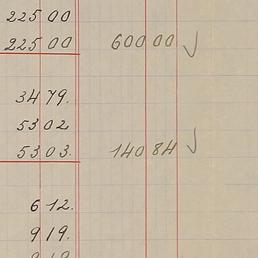 225 00
225 00 600 00 √
34 79.
53 02
53 03. 140 84 √
6 12.
9 19.